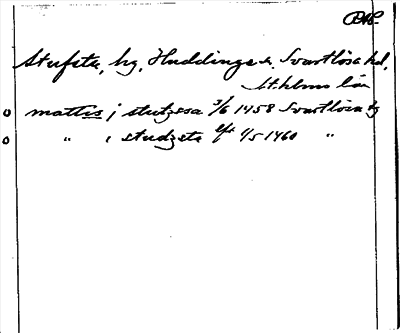 Stufsta, by, Huddinge s:n, Svartlösa hd,
Sthlms län
mattis j stutzssa 3/6 1458 Svartlösa
" i studzsta 1/5 1460 "